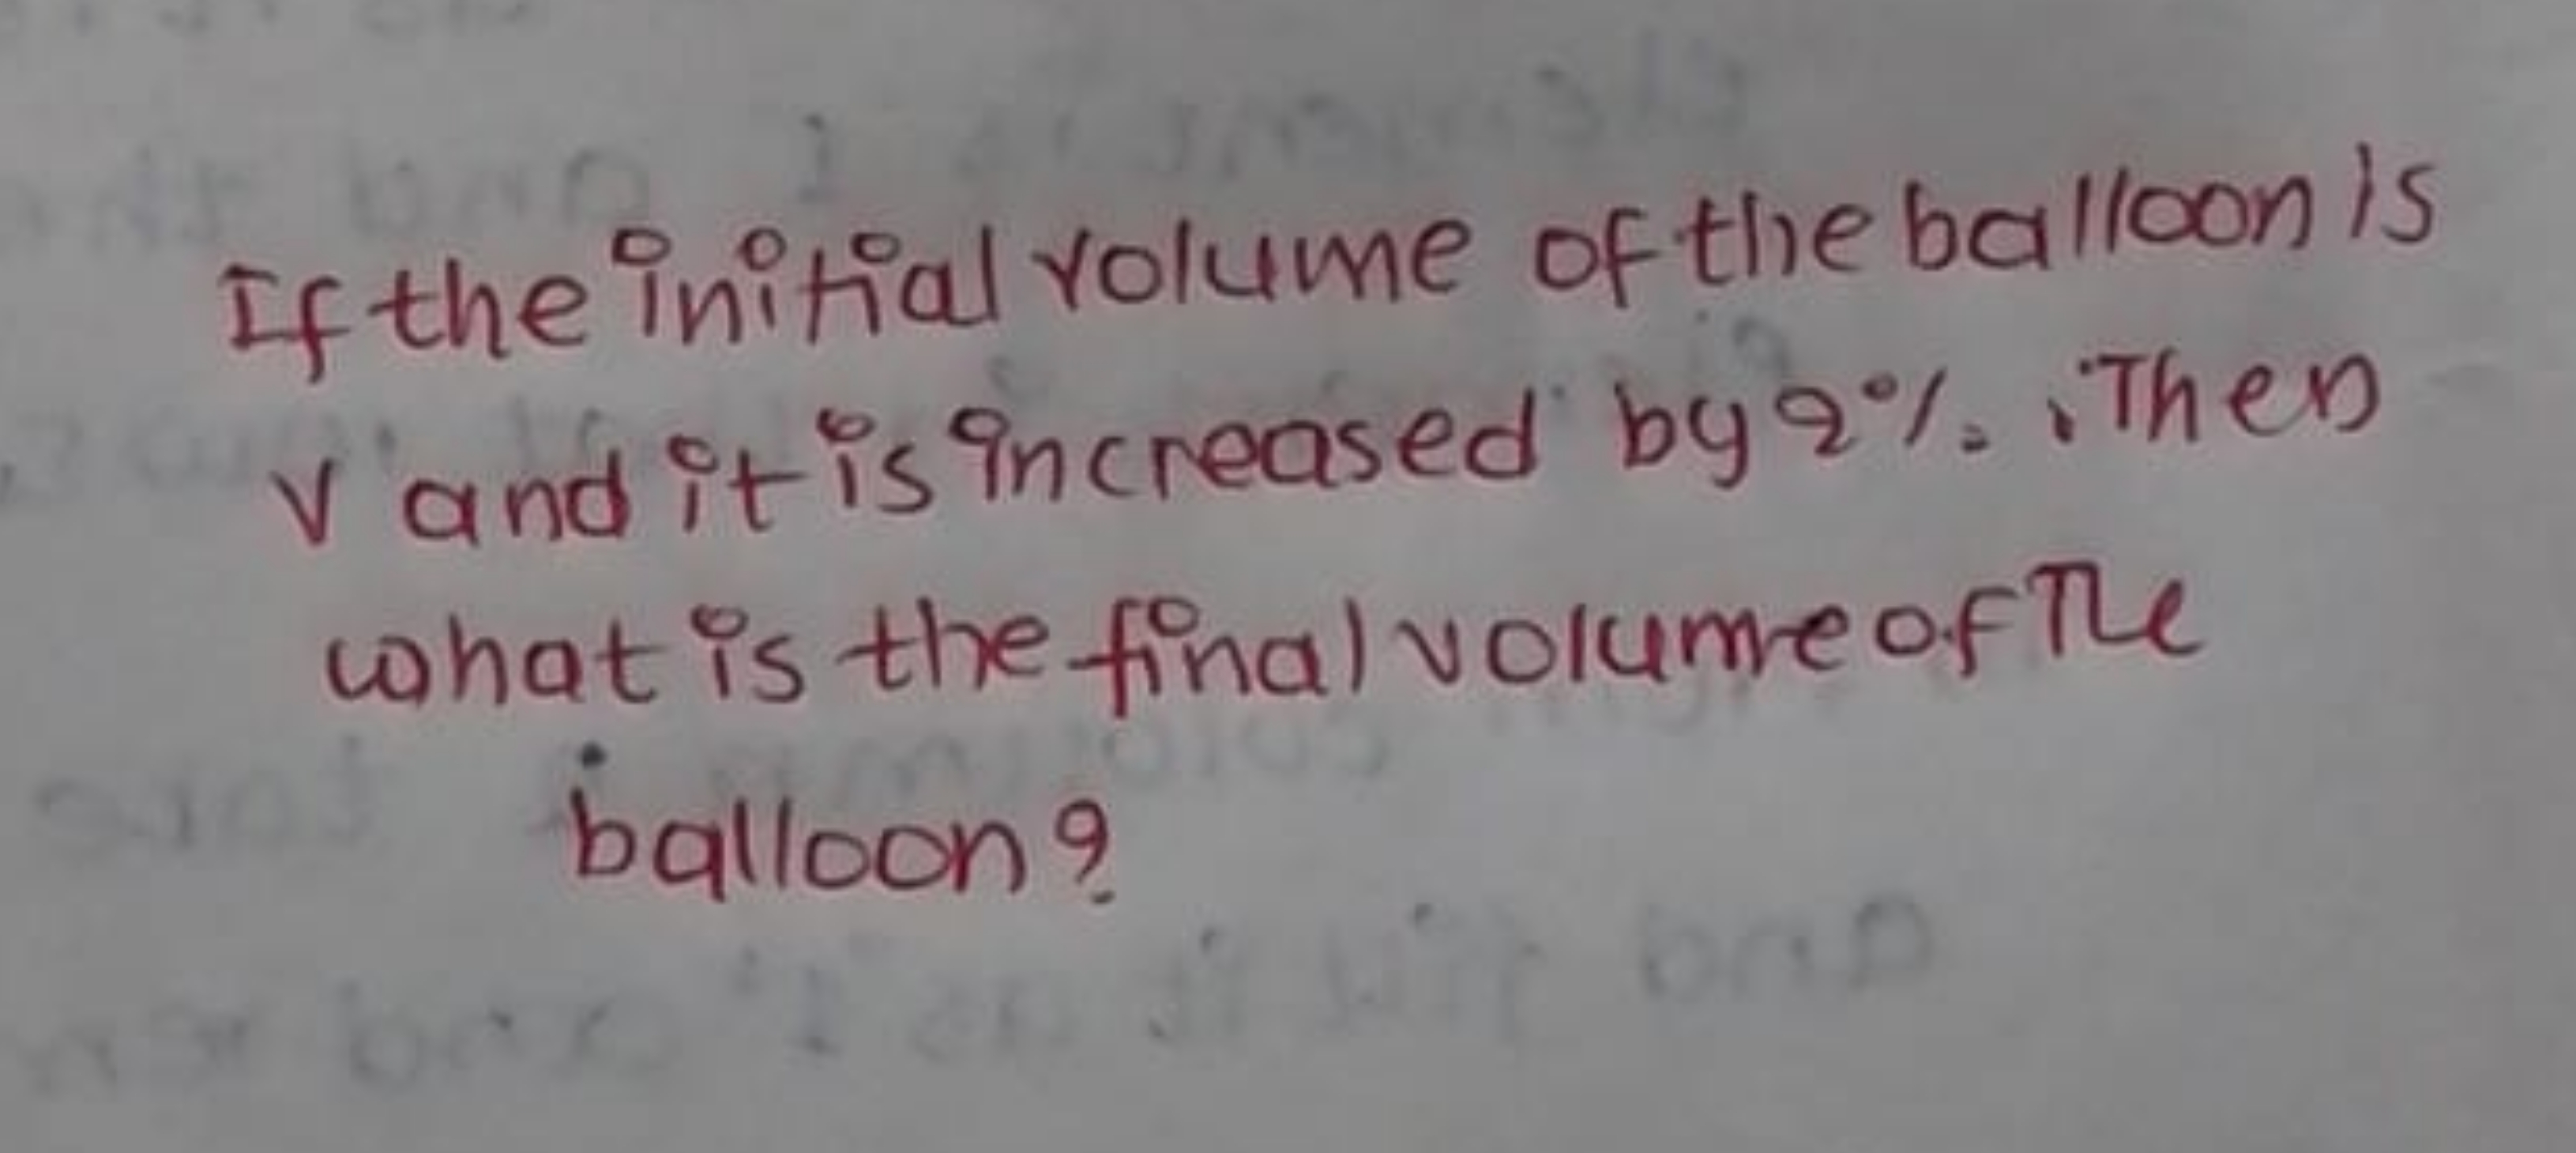 If the initial volume of the balloon is
V and it is increased by 2%. Then
what is the final volume of The
balloon?